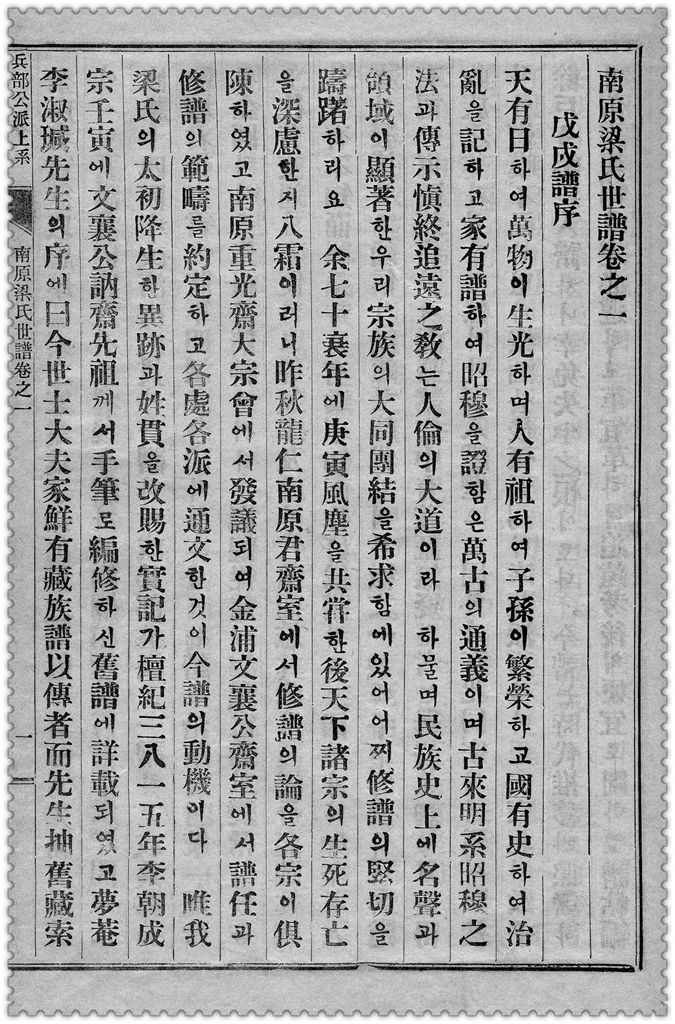 南原梁氏世譜卷之一
戊戌譜序
天有日하여萬物이生光하며人有祖하여子孫이繁榮하고國有史하여治
亂을記하고家有譜하여昭穆을證함은萬古의通義이며古來明系昭穆之
法과傳示愼終追遠之敎는人倫의大道이라 하물며民族史上에名聲과
領域이顯著한우리宗族의大同團結을希求함에있어어찌修譜의緊切을
躊躇하리요 余七十衰年에庚寅風塵을共嘗한後天下諸宗의生死存亡
을深慮한지八霜이러니昨秋龍仁南原君齋室에서修譜의論을各宗이俱
陳하였고南原重光齋大宗會에서發議되여金浦文襄公齋室에서譜任과
修譜의範疇를約定하고各處各派에通文한것이今譜의動機이다 唯我
梁氏의太初降生한異跡과姓貫을改賜한實記가檀紀三八一五年李朝成
宗壬寅에文襄公訥齋先祖께서手筆로編修하신舊譜에詳載되였고夢菴
李淑瑊先生의序에曰今世士大夫家鮮有藏族譜以傳者而先生抽舊藏索
兵部公派上系
南原梁氏世譜卷之一
一